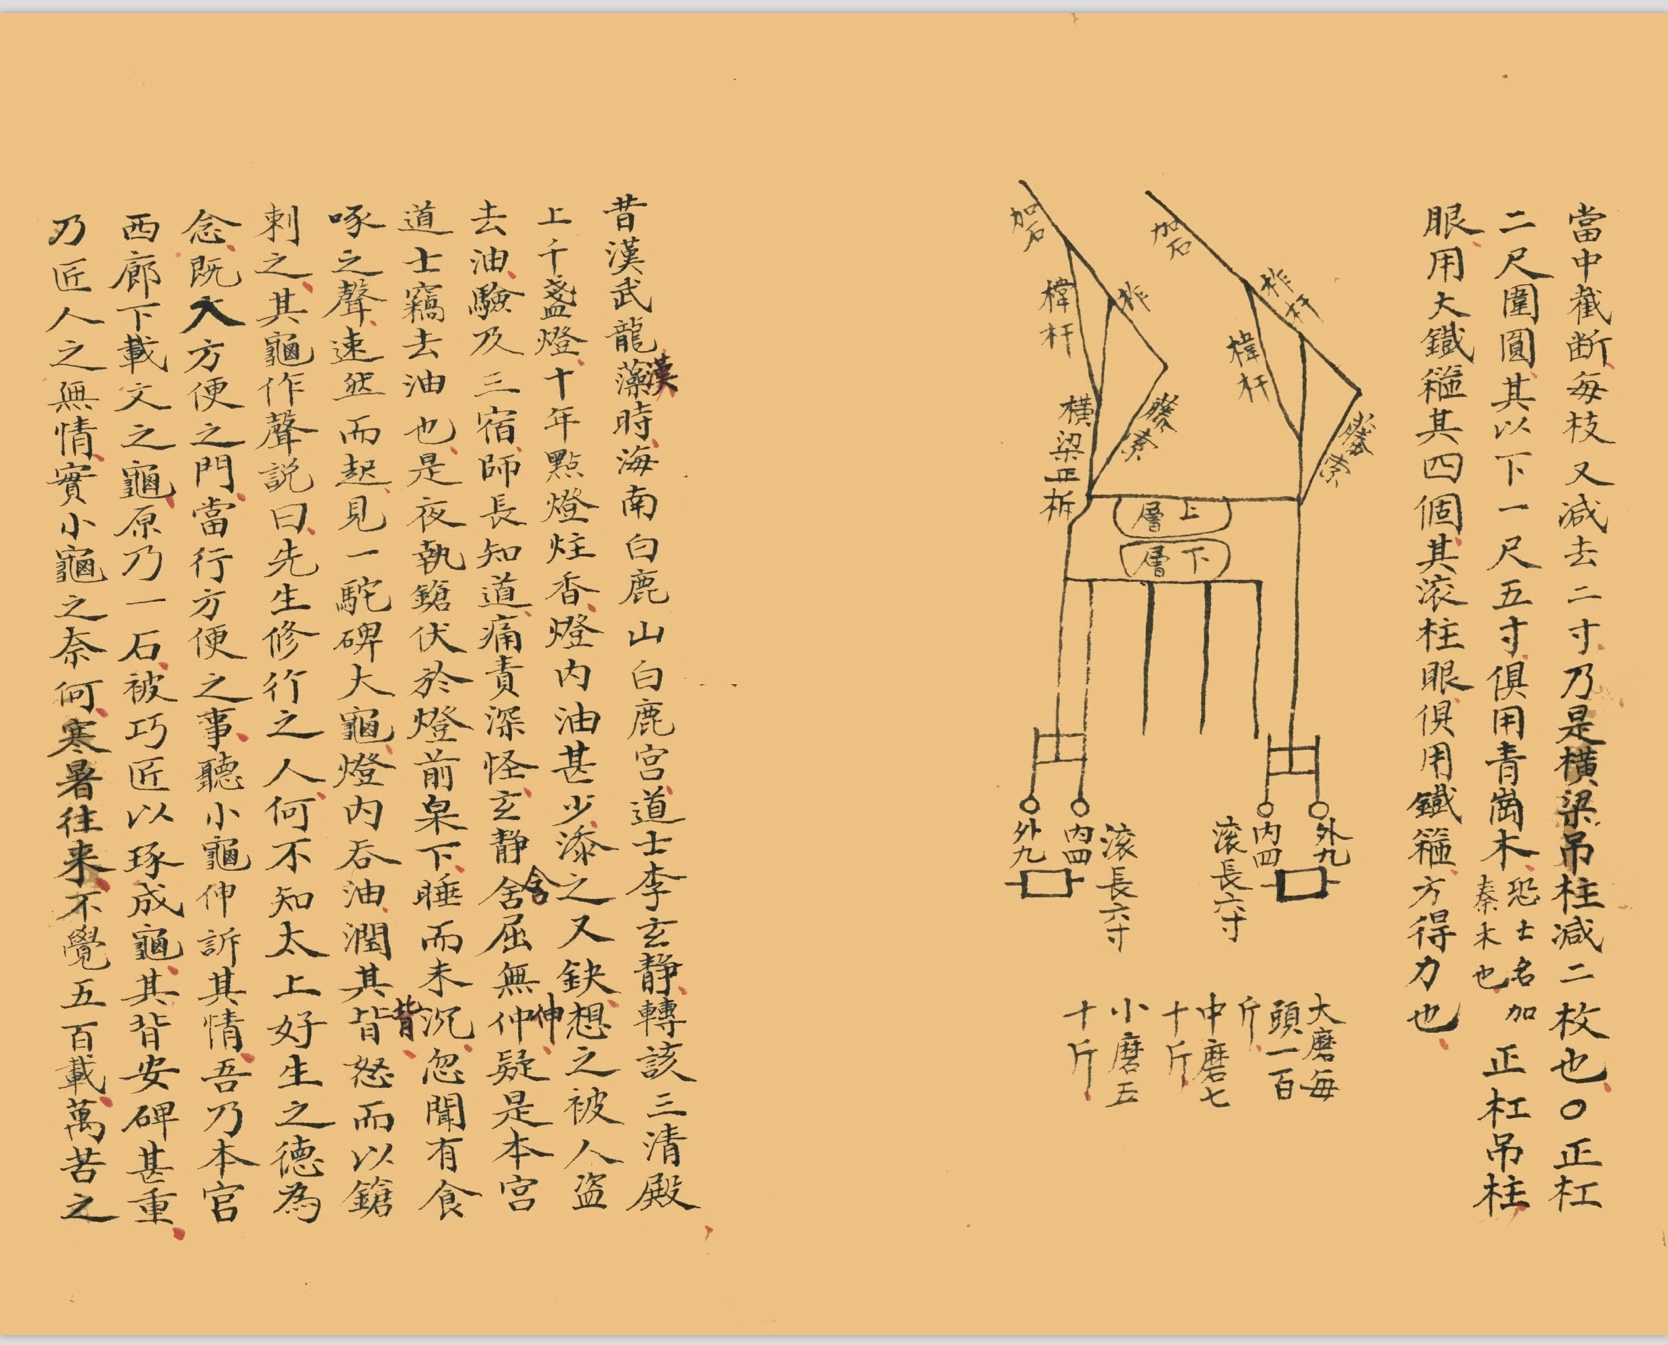 當中截断每枝又減去二寸乃是橫梁吊柱減二枚也〇正杠
二尺圍圓其以下一尺五寸俱用青崗木恐士名加秦木也正杠吊柱
眼用大鐵箍其四個其滚柱眼俱用鐵箍方得力也
加石
柞杆
樟杆
籐索
加石
柞
樟杆
籐索
橫梁正柝
上層
下層
外九
内四
滚長六寸
滚長六寸
内四
外九
大磨每
頭一百
斤
中磨七
十斤
小磨五
十斤
昔漢武龍藻漢時海南白鹿山白鹿宫道士李玄静轉該三清殿
上千盞燈十年點燈炷香燈内油甚少添之又缺想之被人盗
去油驗及三宿師長知道痛責深怪玄静舍含屈無仲伸疑是本宫
道士竊去油也是夜執鎗伏於燈前杲下睡而未沉忽聞有食
啄之聲速然而起見一駝碑大龜燈内吞油潤其㫮皆怒而以鎗
刺之其龜作聲説曰先生修行之人何不知太上好生之德為
念既入方便之門當行方便之事聽小龜伸訴其情吾乃本官
西廊下載文之龜原乃一石被巧匠以琢成龜其背安碑甚重
乃匠人之無情實小龜之奈何寒暑往来不覺五百載萬苦之